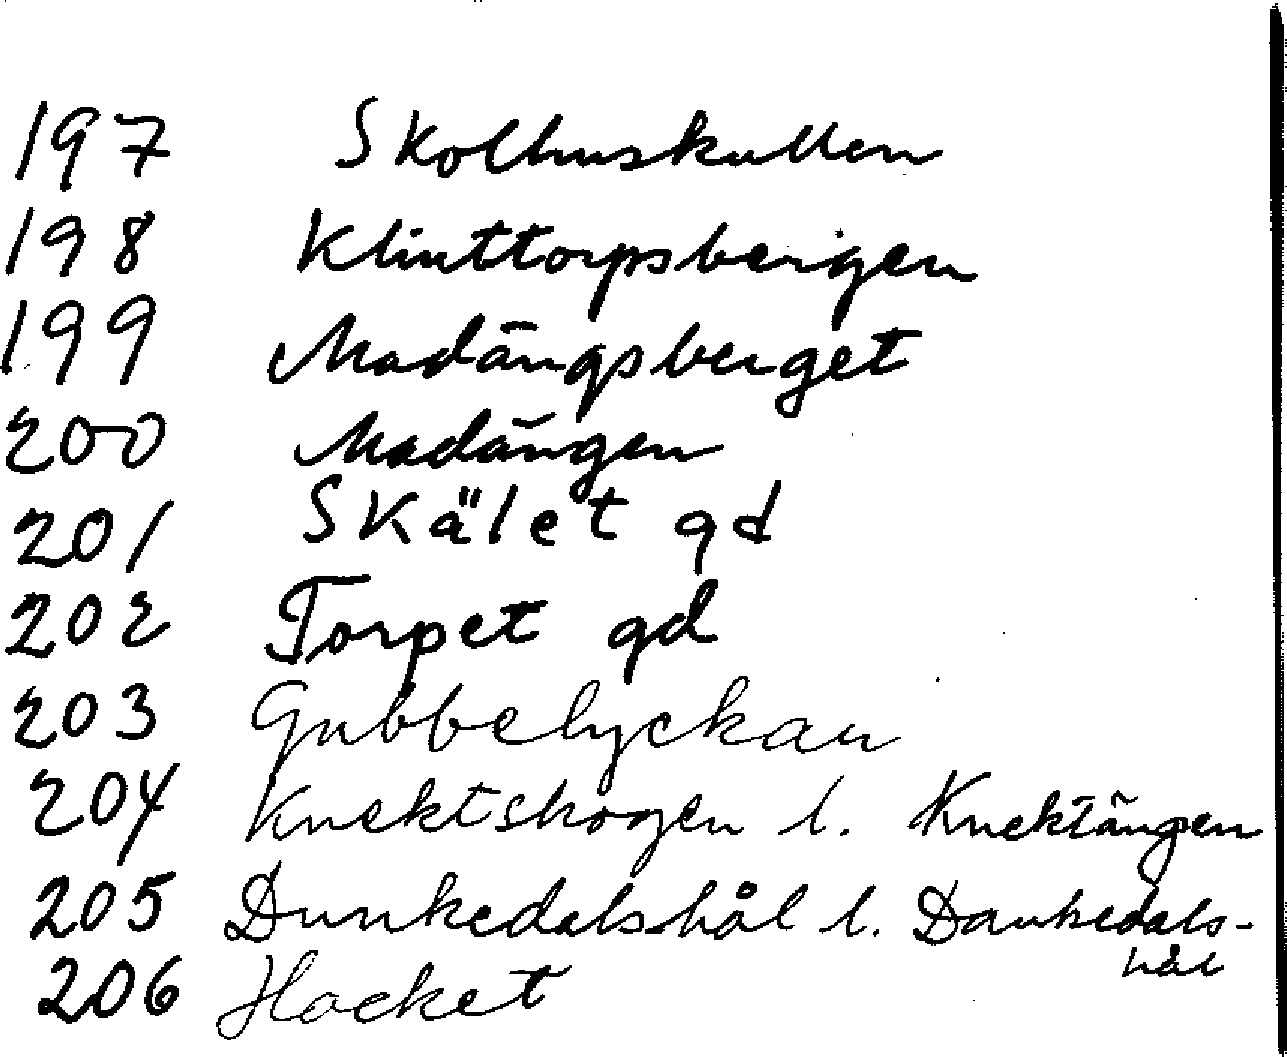 197 Skolhuskullen
198 Klinttorpsbergen
199 Madängsberget
200 Madängen
201 Skälet gd
202 Torpet gd
203 Gubbelyckan
204 Knektskogen l. Knektängen
205 Dunkedalshål l. Dankedals-
hål
206 Hacket